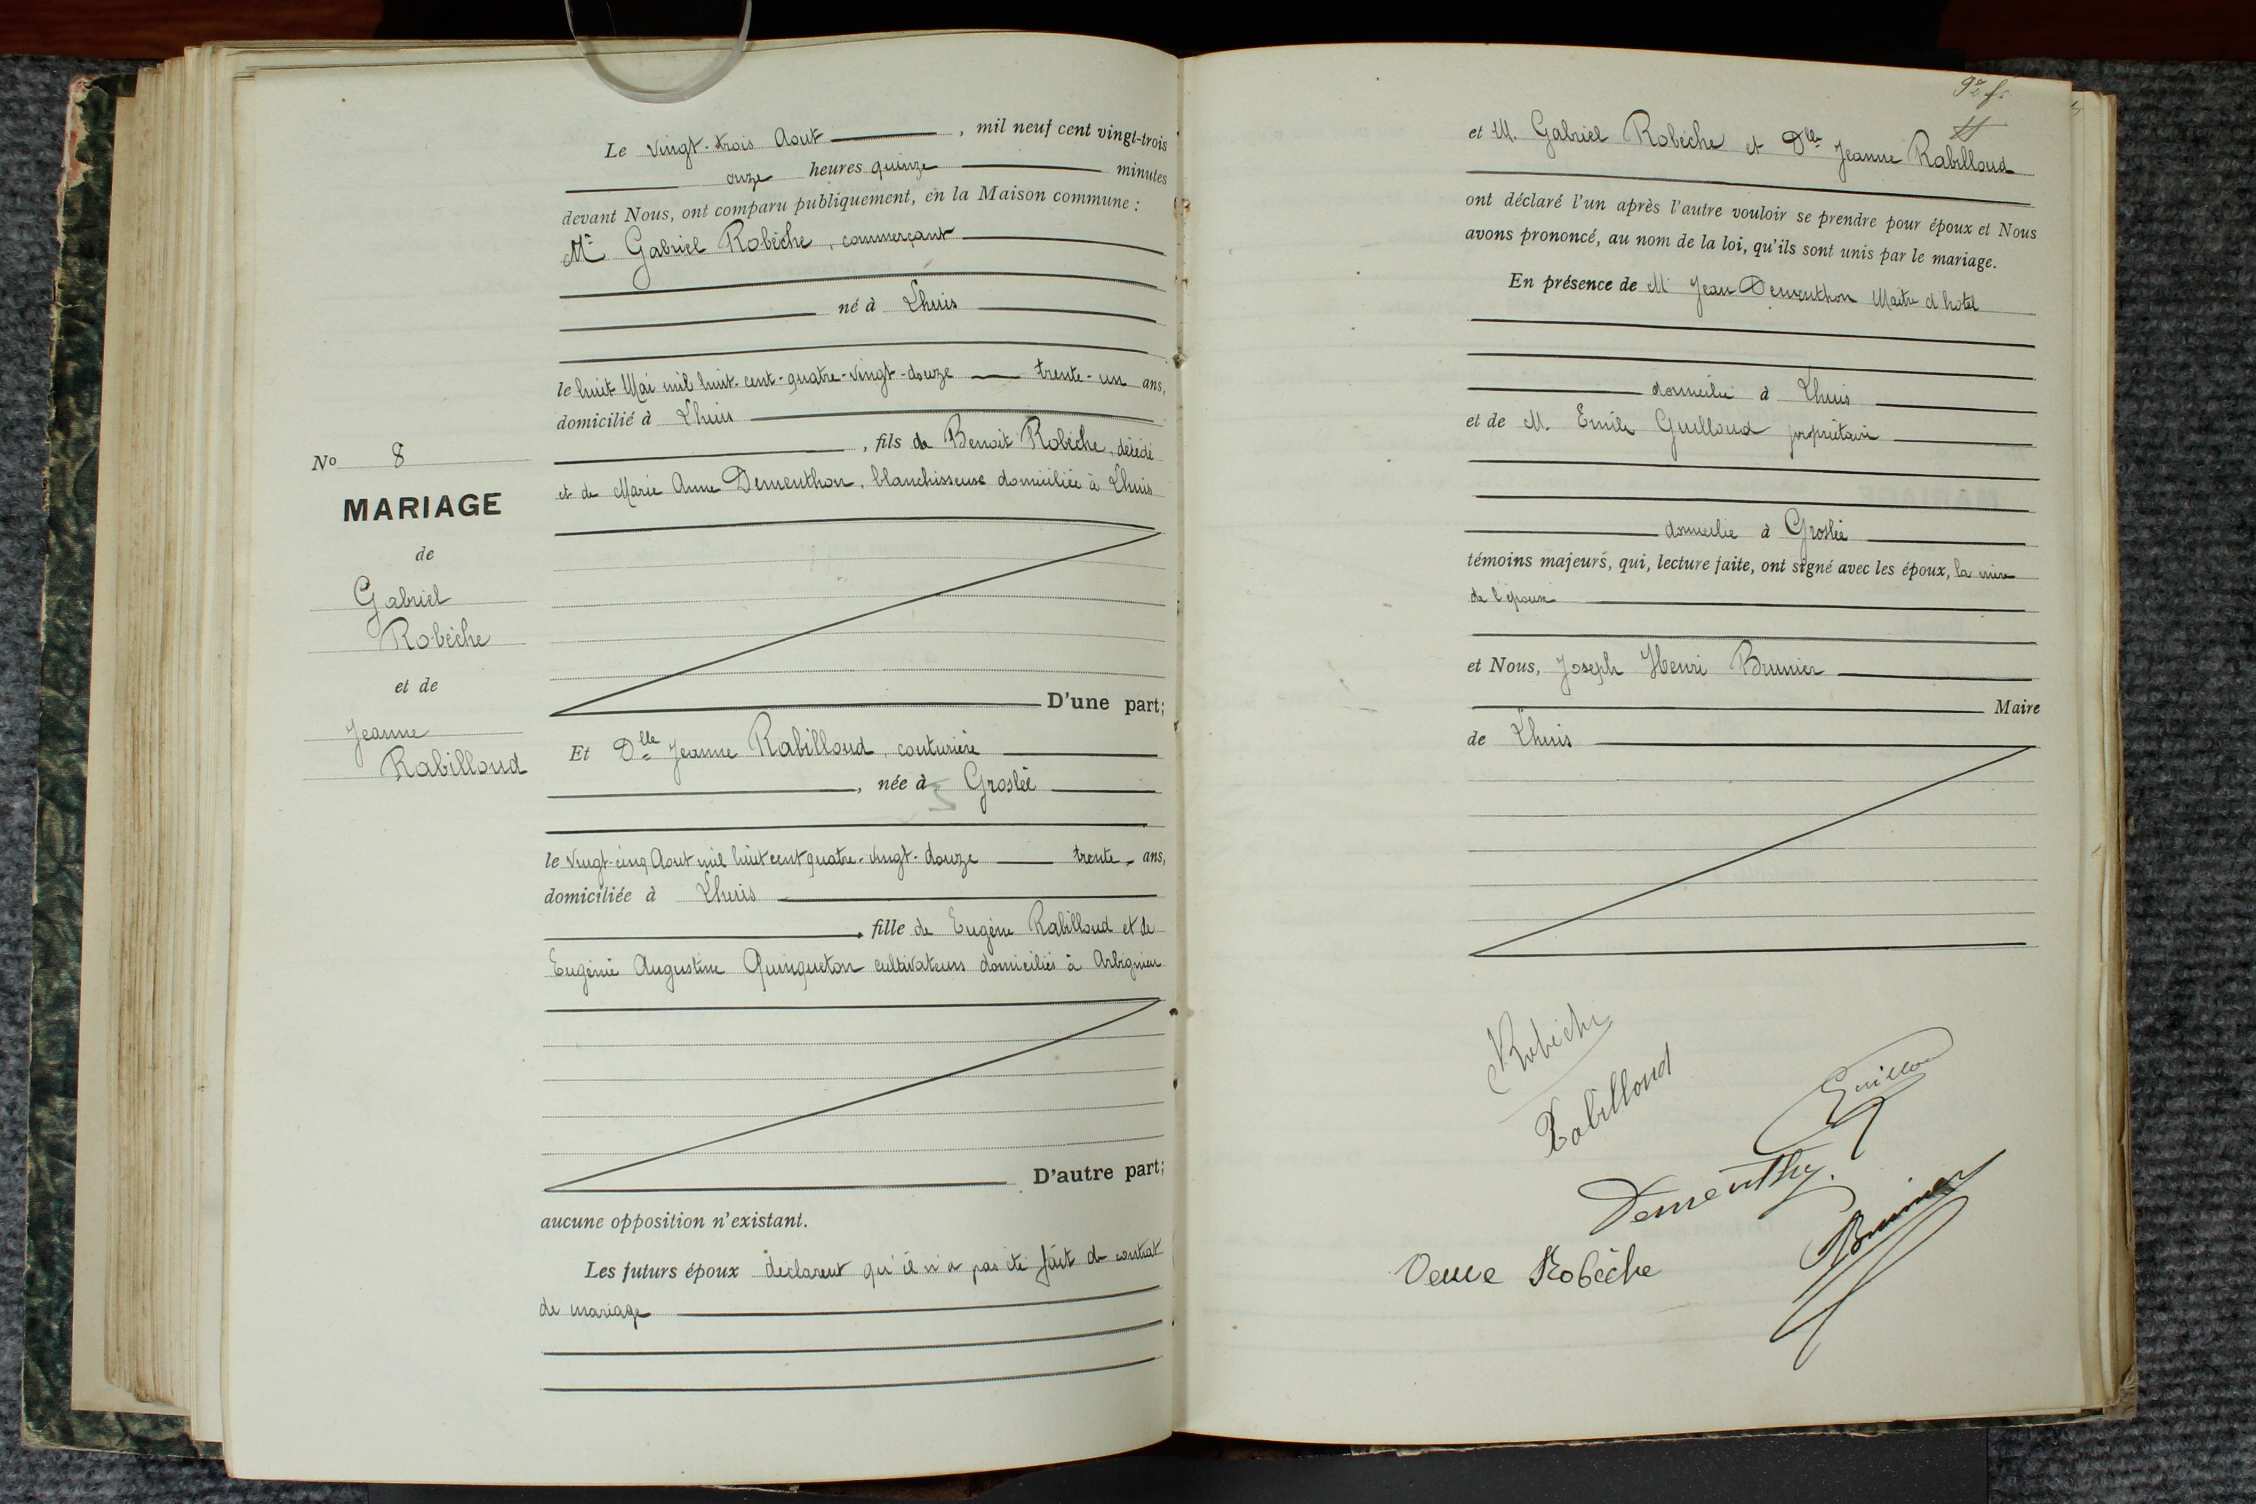 Le vingt-trois Aout, mil neuf cent vingt-trois
onze heures quinze minutes
devant Nous, ont comparu publiquement, en la Maison commune :
Mr Gabriel Robèche, commerçant
né à Lhuis
le huit Mai mil huit-cent-quatre-vingt-douze trente-un ans,
domicilié à Lhuis
, fils de Benoit Robèche, décédé
et de Marie Anne Dementhon, blanchisseuse domiciliée à Lhuis
D'une part;
No 8
MARIAGE
de
Gabriel
Robèche
et de
Jeanne
Rabilloud
Et Dlle Jeanne Rabilloud, couturière
, née à Groslée
le vingt-cinq Aout mil huit cent quatre-vingt-douze trente ans,
domiciliée à Lhuis
, fille de Eugène Rabilloud et de
Eugénie Augustine Quinqueton cultivateurs domiciliés à Arbignieu
D'autre part;
aucune opposition n'existant.
Les futurs époux déclarent qu'il n'a pas été fait de contrat
de mariage
et M. Gabriel Robèche et Dlle Jeanne Rabilloud
ont déclaré l'un après l'autre vouloir se prendre pour époux et Nous
avons prononcé, au nom de la loi, qu'ils sont unis par le mariage.
En présence de M Jean Dementhon Maitre d'hotel
domicilié à Lhuis
et de M. Emile Guilloud propriétaire
domicilié à Groslée
témoins majeurs, qui, lecture faite, ont signé avec les époux, la mère
de l'époux
et Nous, Joseph Henri Brunier
Maire
de Lhuis
Robèche
Rabilloud
Dementhon
Brunier
Veuve Robèche